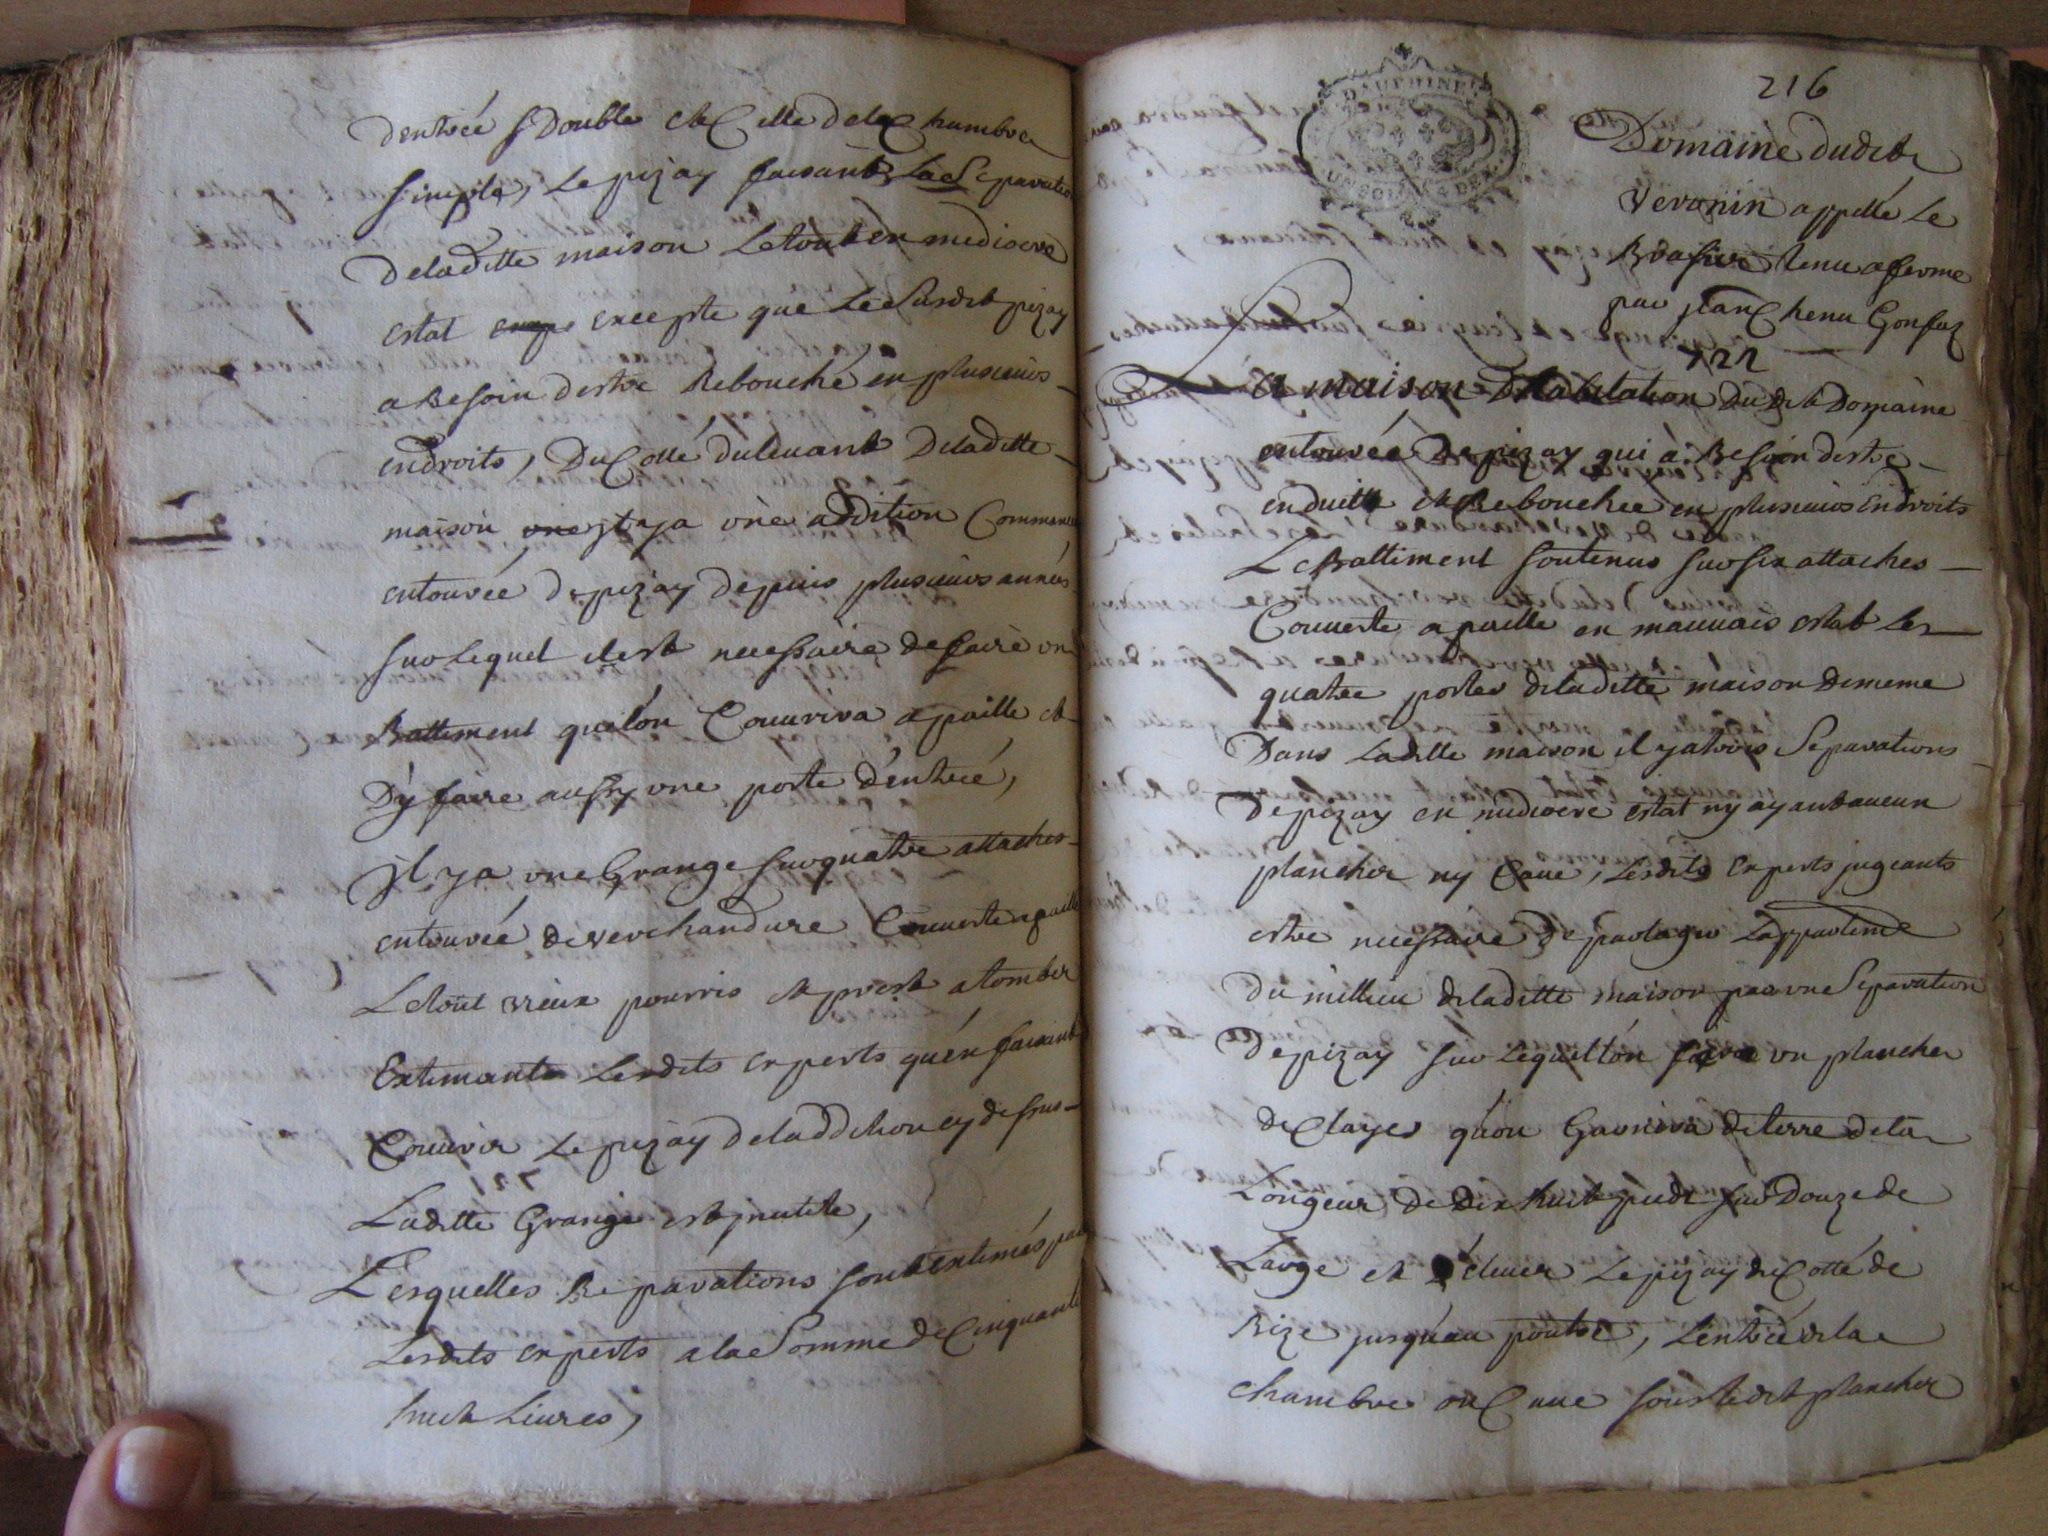 dentreé double et Celle dela Chambre
simple, Le pizay faisant La Separation
deladitte maison Le tout en mediocre
estat excepte que Le Susdit pizay
a Besoin destre Rebouché en plusieurs
endroits, Du Cotté du leuant Deladitte
maison une jl ya vne addition Commancé
entourée depizay depuis plusieurs années
sur Lequel il est necessaire de faire vn
Battiment que lón Couurira a paille et
D'y faire aussy vne porte D'entreé,
jl ya vne Grange sur quatre attaches
entourée de verchandure Couuerte a paille
Le tout vieux pourris et prest a tomber
Extimants Lesdits experts qu'en faisant
Couurir Le pizay de laddition cy dessus
721
Laditte Grange est jnutile,
Lesquelles Reparations sont extimés par
Lesdits experts a la Somme de Cinquante
huit Liures,
216
DAUPHINE
Domaine dudit
Veronin appellé Le
Brasier tenu a ferme
par jean Chenu Gonfaz
722
La maison D'habitation Dudit Domaine
entourée De pizay qui á Besoin destre
enduitte et Rebouchee en plusieurs Endroits
Le Battiment soutenus sur six attaches
Couuerte a paille en mauuais estat Les
quatre portes deladitte maison demême
Dans Laditte maison il ya trois Separations
De pizay en mediocre estat ny ayant aucun
plancher ny Caue, Lesdits Experts jugeants
estre necessaire De partager
Du millieu deladitte maison par vne Separation
De pizay sur Lequel lón fera vn plancher
de Clayes qu'on Garnira de terre dela
Longeur de Dix huit pieds sur Douze de
Large et eleuer Le pizay du Cotté de
Bize jusqu'au poutre, L'entreé dela
Chambre ou Caue sous ledit plancher